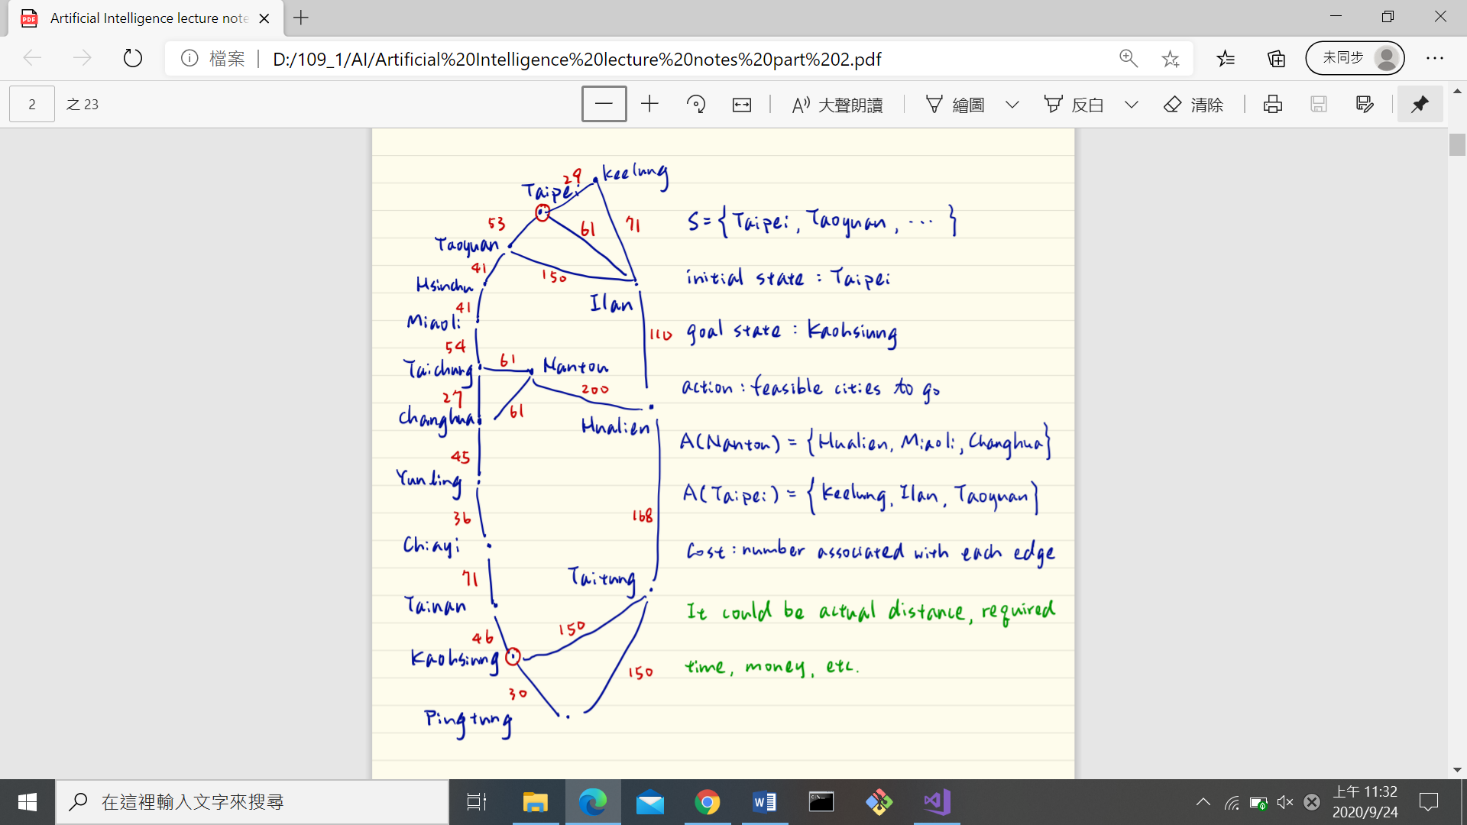 Artificial Intelligence lecture note
檔案
D:/109_1/AI/Artificial%20Intelligence%20lecture%20notes%20part%202.pdf
未同步
2 之 23
大聲朗讀
繪圖
反白
清除
29 Keelung
Taipei
53 61 71
Taoyuan
41 150
Hsinchu
Ilan
41
Miaoli
110
54
61 Nanton
Taichung
200
27
61
Changhua
Hualien
45
Yunling
36 168
Chiayi
71 Taitung
Tainan
150
46
Kaohsiung
150
30
Pingtung
S={Taipei, Taoyuan, ... }
initial state : Taipei
goal state : Kaohsiung
action : feasible cities to go
A(Nanton) = {Hualien, Miaoli, Changhua}
A(Taipei) = {Keelung, Ilan, Taoyuan}
Cost : number associated with each edge
It could be actual distance, required
time, money, etc.
在這裡輸入文字來搜尋
上午 11:32
2020/9/24